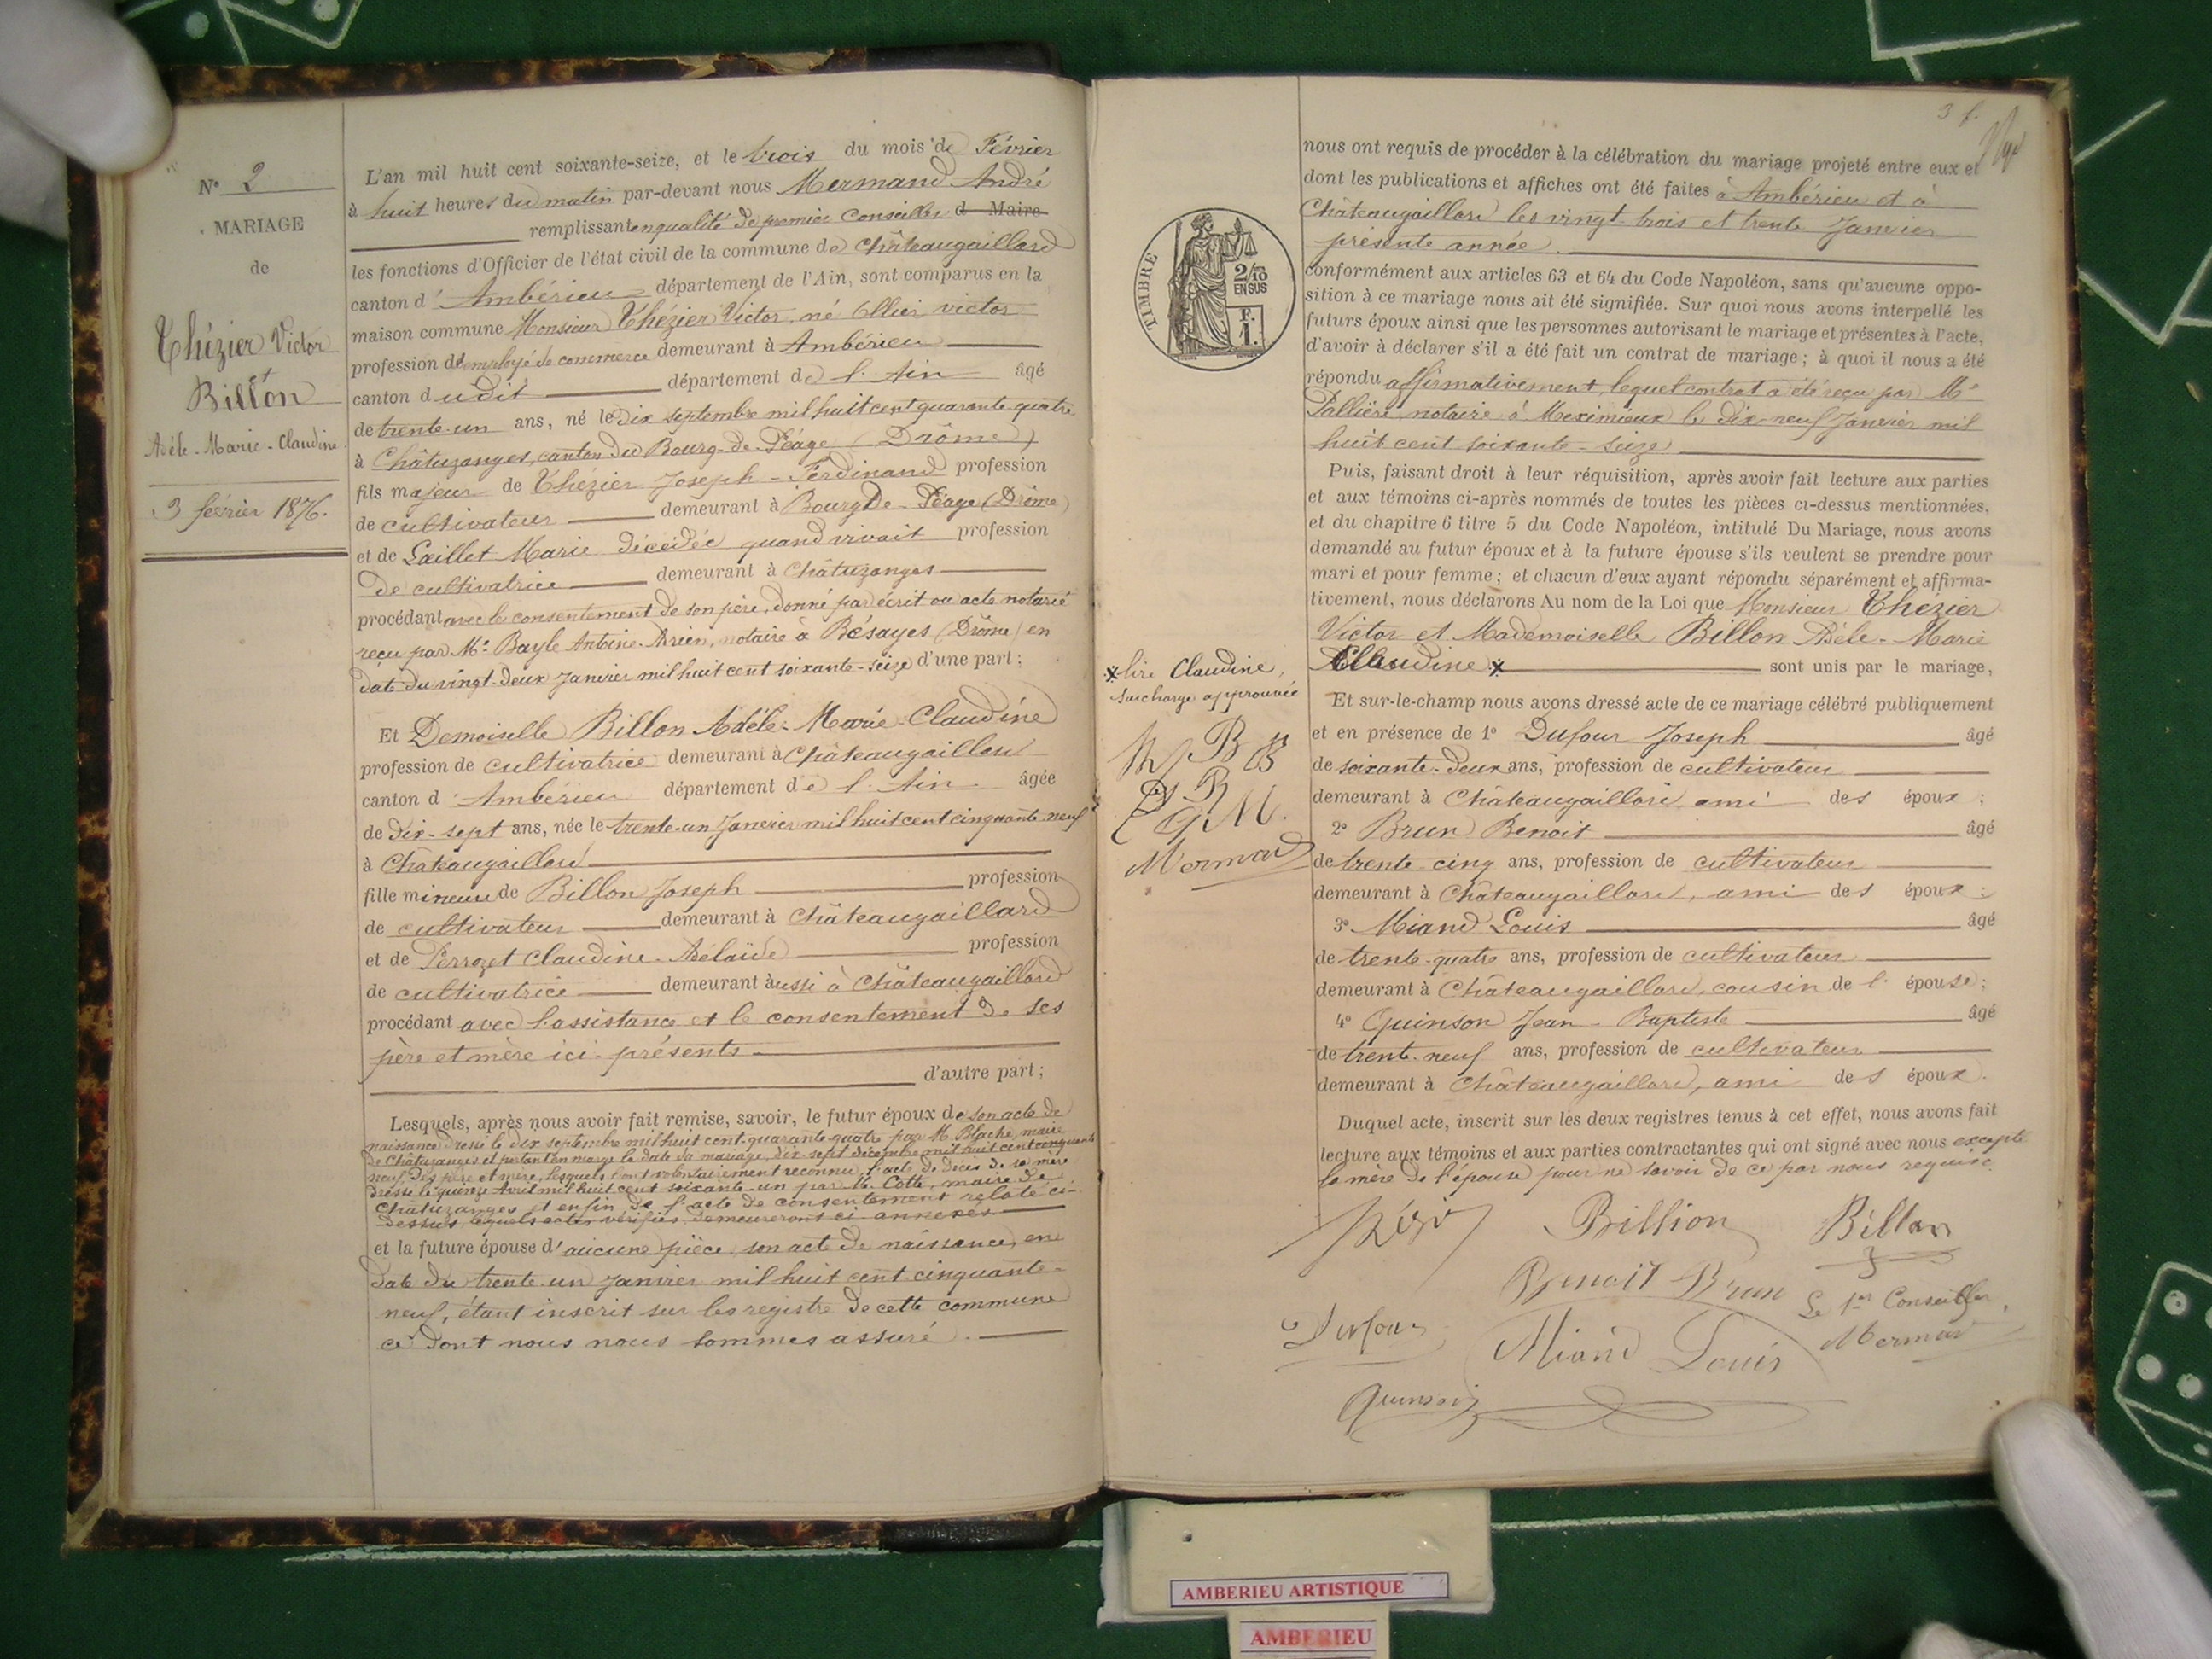 N° 2
MARIAGE
de
Thézier Victor
et
Billon
Adèle-Marie-Claudine
3 février 1876.
L'an mil huit cent soixante-seize, et le trois du mois de Février
à huit heures du matin par-devant nous Mermand André
en qualité de premier Conseiller d Maire
remplissant
les fonctions d'Officier de l'état civil de la commune de Châteaugaillard
canton d'Ambérieu département de l'Ain, sont comparus en la
maison commune Monsieur Thézier Victor, né Ollier victor
profession d'employé de commerce demeurant à Ambérieu
canton dudit département de l'Ain âgé
de trente-un ans, né le dix septembre mil huit cent quarante quatre
à Châtuzanges, canton du Bourg-de-Péage (Drôme)
fils majeur de Thézier Joseph-Ferdinand profession
de cultivateur demeurant à Bourg De-Péage (Drôme)
et de Laillet Marie décédée quand vivait profession
de cultivatrice demeurant à Châtuzanges
procédant avec le consentement de son père, donné par écrit ou acte notarié
reçu par Me Bayle Antoine notaire à Bésayes (Drôme) en
date du vingt-deux Janvier mil huit cent soixante-seize d'une part;
Et Demoiselle Billon Adèle-Marie-Claudine
profession de cultivatrice demeurant à Châteaugaillard
canton d'Ambérieu département de l'Ain âgée
de dix-sept ans, née le trente-un Janvier mil huit cent cinquante-neuf
à Châteaugaillard
fille mineure de Billon Joseph profession
de cultivateur demeurant à Châteaugaillard
et de Perrozet Claudine-Adélaïde profession
de cultivatrice demeurant aussi à Châteaugaillard
procédant avec l'assistance et le consentement de ses
père et mère ici-présents
d'autre part;
Lesquels, après nous avoir fait remise, savoir, le futur époux de son acte de
naissance dressé le dix septembre mil huit cent-quarante-quatre par M. Blache, maire
de Châtuzanges et portant en marge la date du mariage, dix-sept décembre mil huit cent cinquante
neuf, des père et mère, lesquels l'ont volontairement reconnu, l'acte de décès de sa mère
dressé le quinze Avril mil huit cent soixante-un par M. Cotte, maire de
Chatuzanges et enfin de l'acte de consentement relaté ci-
dessus, lesquels actes vérifiés demeureront ci-annexés
et la future épouse d'aucune pièce, son acte de naissance, en
date du trente-un Janvier mil huit cent cinquante-
neuf, étant inscrit sur les registre de cette commune
ce dont nous nous sommes assuré.
3 f.
nous ont requis de procéder à la célébration du mariage projeté entre eux et
dont les publications et affiches ont été faites à Ambérieu et à
Châteaugaillard les vingt-trois et trente Janvier
présente année.
TIMBRE
2/10
EN SUS
F.
1.
conformément aux articles 63 et 64 du Code Napoléon, sans qu'aucune oppo-
sition à ce mariage nous ait été signifiée. Sur quoi nous avons interpellé les
futurs époux ainsi que les personnes autorisant le mariage et présentes à l'acte,
d'avoir à déclarer s'il a été fait un contrat de mariage; à quoi il nous a été
répondu affirmativement, lequel contrat a été reçu par Me
Pallière notaire à Meximieux le dix-neuf Janvier mil
huit cent soixante-seize
Puis, faisant droit à leur réquisition, après avoir fait lecture aux parties
et aux témoins ci-après nommés de toutes les pièces ci-dessus mentionnées,
et du chapitre 6 titre 5 du Code Napoléon, intitulé Du Mariage, nous avons
demandé au futur époux et à la future épouse s'ils veulent se prendre pour
mari et pour femme; et chacun d'eux ayant répondu séparément et affirma-
tivement, nous déclarons Au nom de la Loi que Monsieur Thézier
Victor et Mademoiselle Billon Adèle-Marie
Claudine * sont unis par le mariage,
* lire Claudine,
surcharge approuvée
Mermand
Et sur-le-champ nous avons dressé acte de ce mariage célébré publiquement
et en présence de 1° Dufour Joseph âgé
de soixante-deux ans, profession de cultivateur
demeurant à Châteaugaillard ami des époux;
2° Brun Benoit âgé
de trente cinq ans, profession de cultivateur
demeurant à Châteaugaillard, ami des époux;
3° Miand Louis âgé
de trente-quatre ans, profession de cultivateur
demeurant à Châteaugaillard, cousin de l'épouse;
4° Quinson Jean-Baptiste âgé
de trente-neuf ans, profession de cultivateur
demeurant à Châteaugaillard, ami des époux.
Duquel acte, inscrit sur les deux registres tenus à cet effet, nous avons fait
lecture aux témoins et aux parties contractantes qui ont signé avec nous excepté
la mère de l'épouse pour ne savoir de ce par nous requise.
Billion Billon
Benoit Brun Le 1er Conseiller,
Dufour Miand Louis Mermand
Quinson
AMBERIEU ARTISTIQUE
AMBERIEU